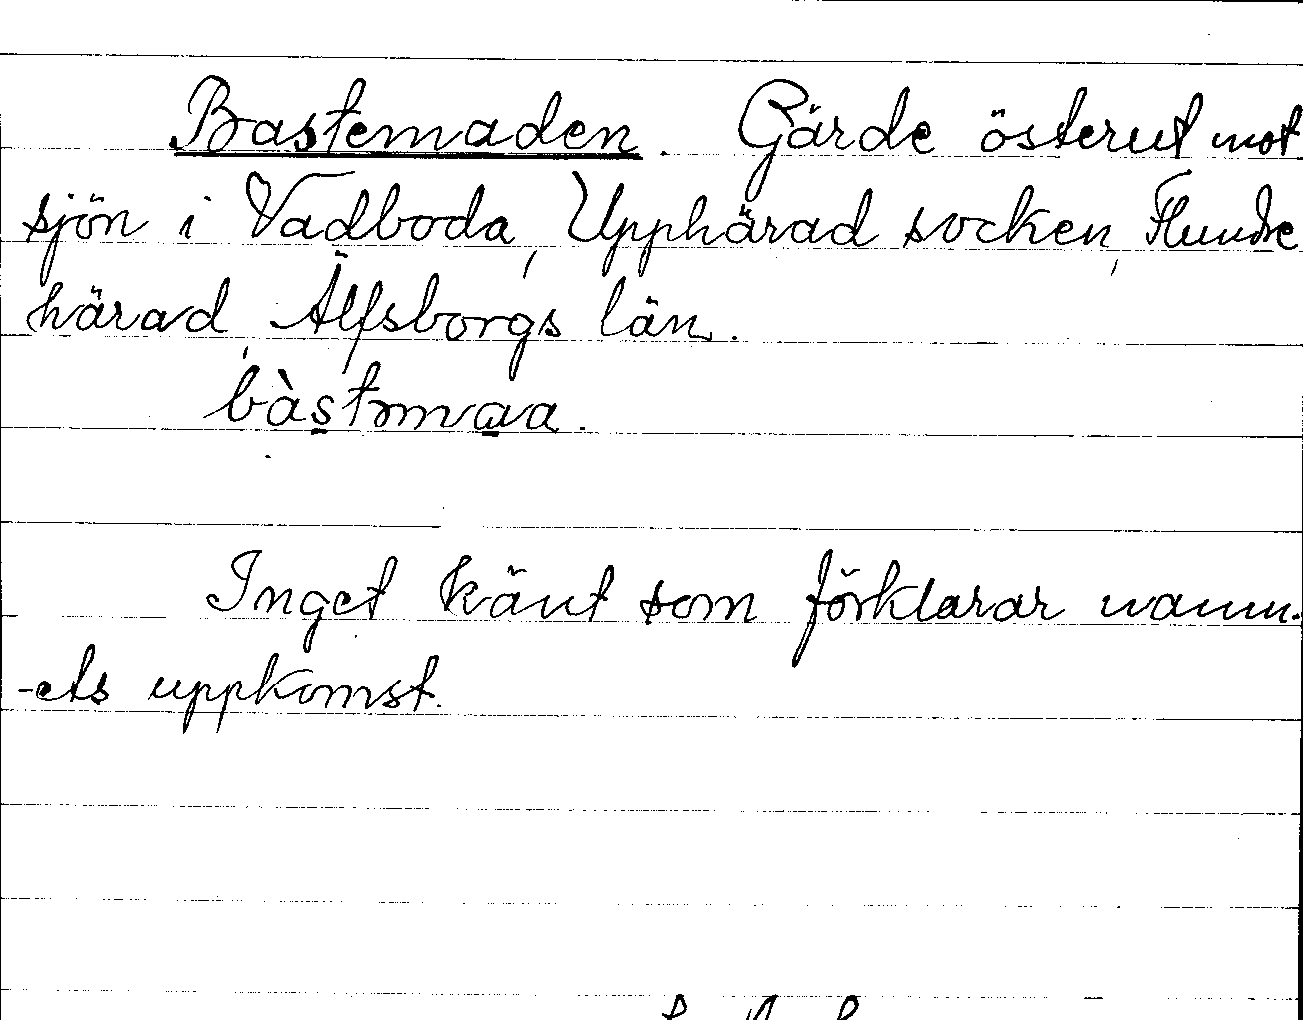 Bastemaden. Gärde österut mot
sjön i Vadboda, Upphärad socken, Flundre
härad, Älfsborgs län.
bàstmaa.
Inget känt som förklarar namn-
-ets uppkomst.